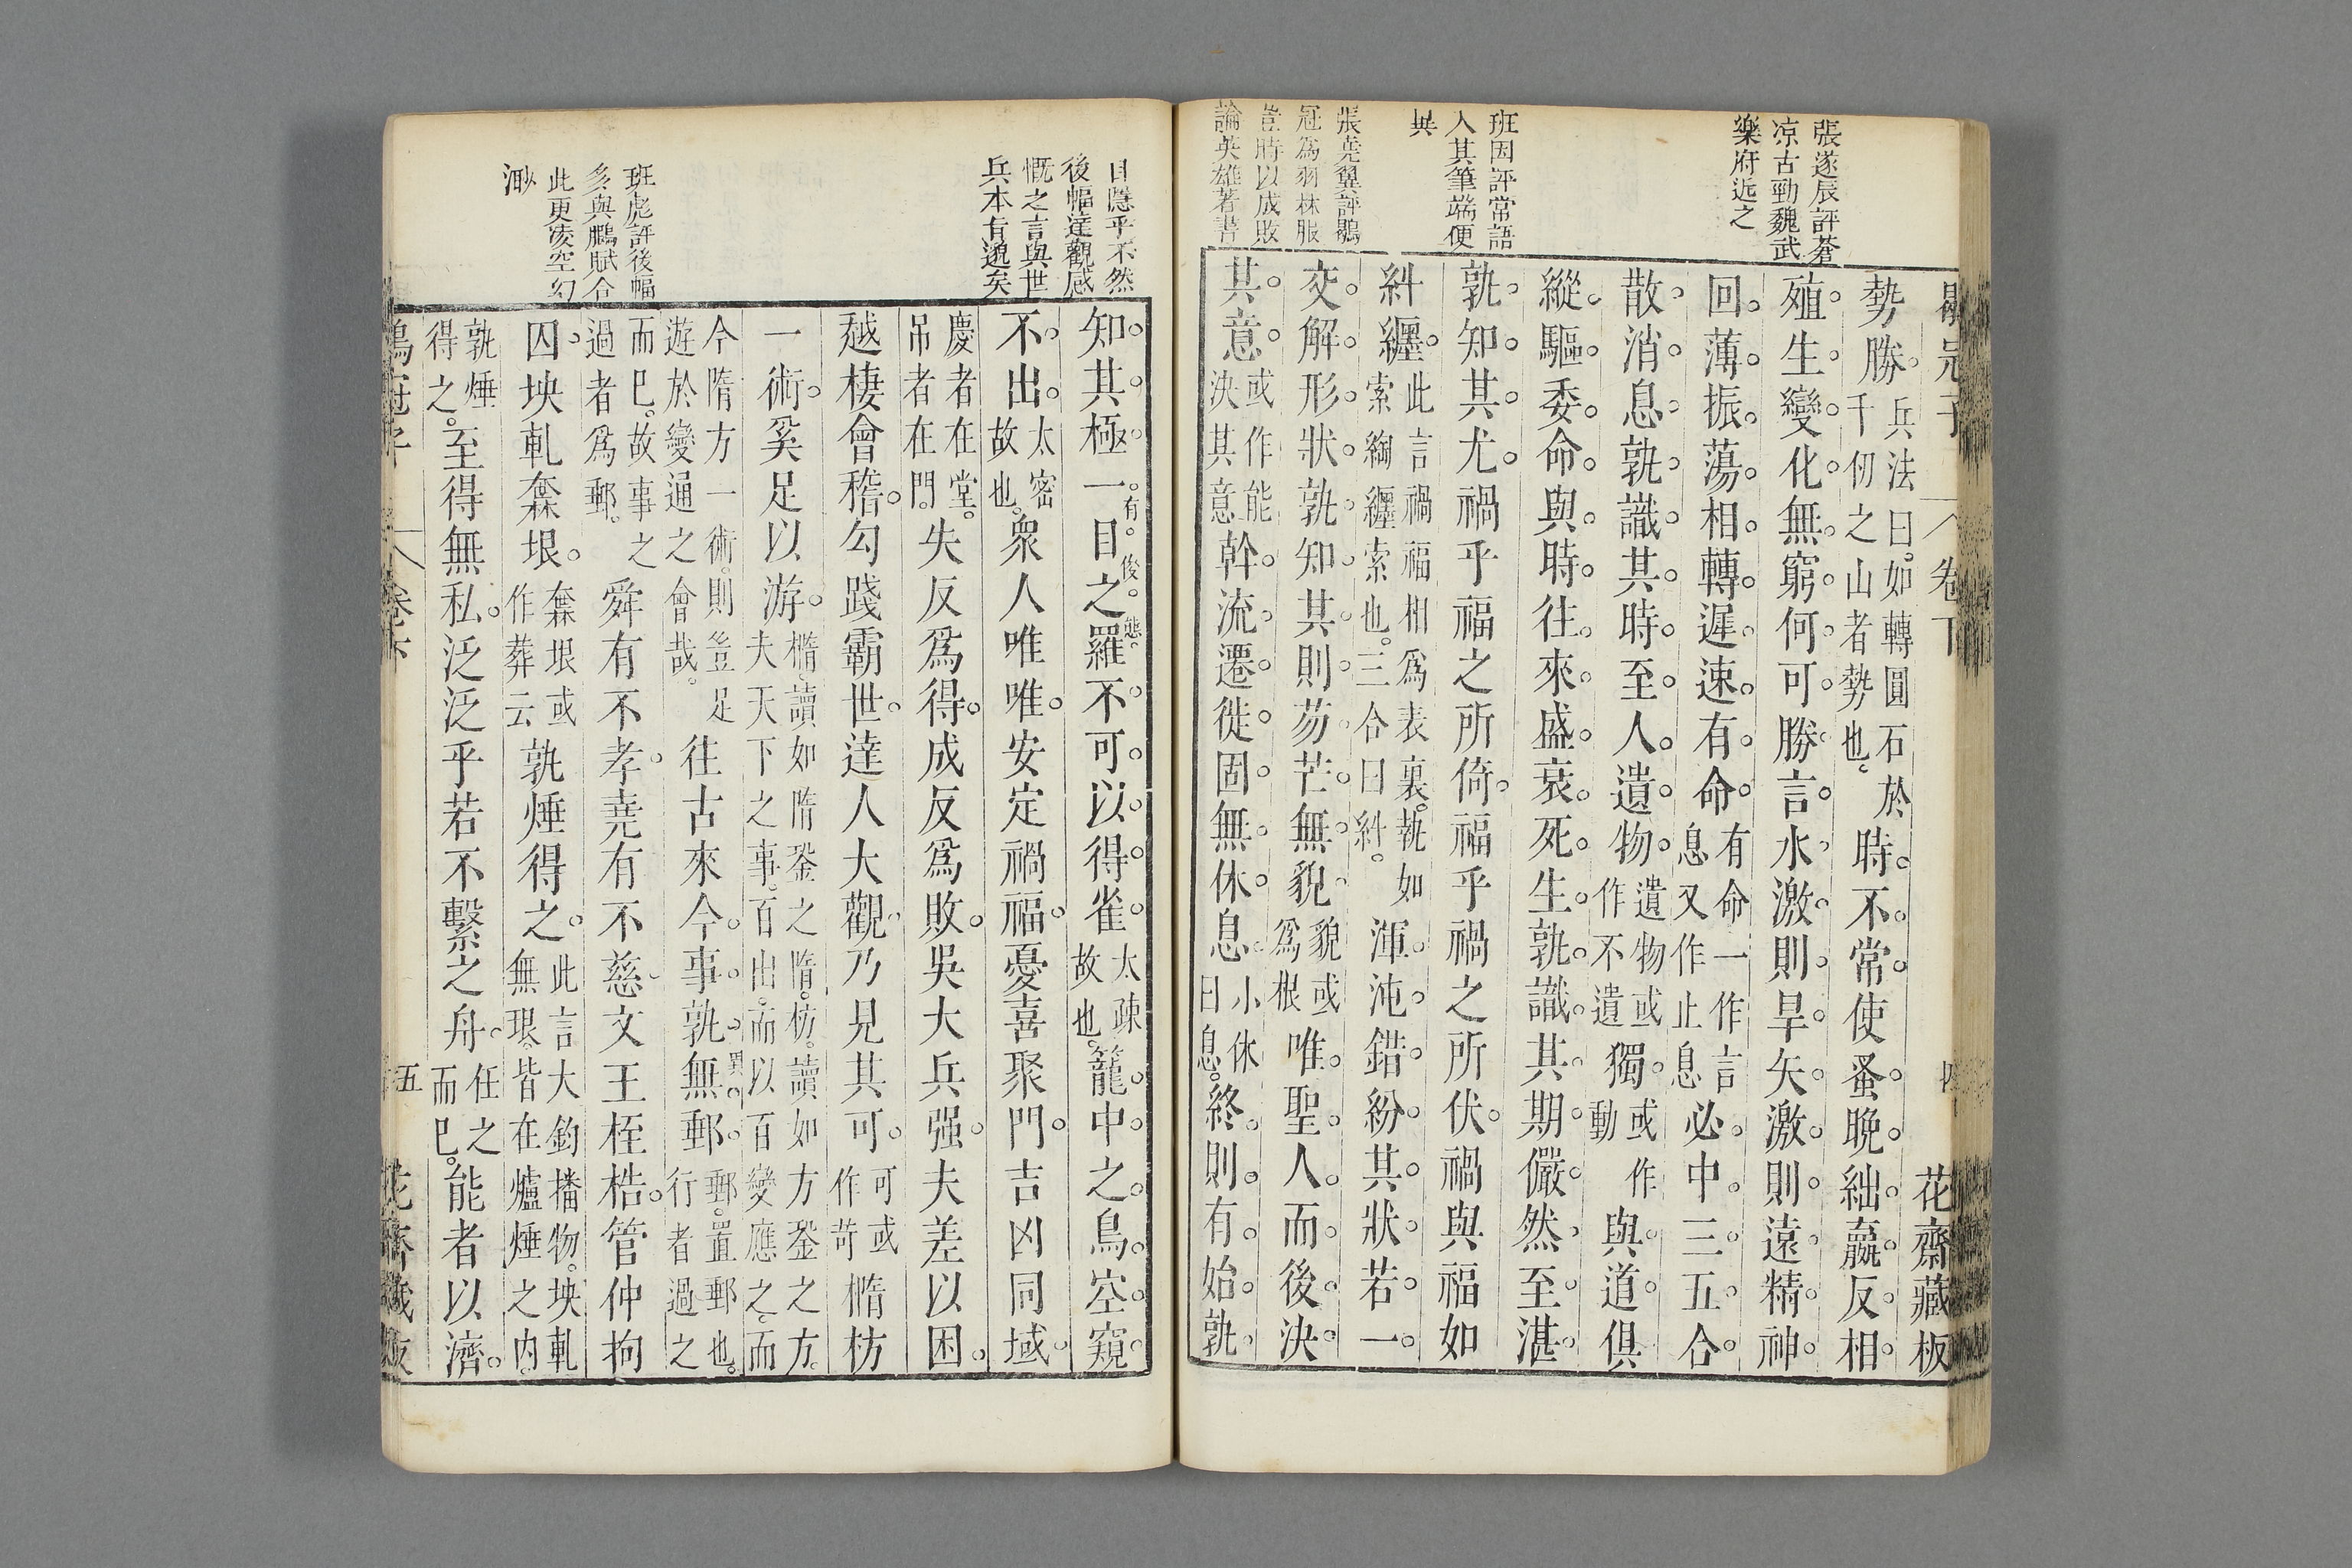 張遂辰評蒼
凉古勁魏武
樂府近之
班固評常語
入其筆端便
異
張堯翼評鶡
冠為羽林服
豈時以成敗
論英雄著書
鶡冠子 卷下 四 花齋藏板
勢勝兵法曰。如轉圓石於千仞之山者勢也。時不常使蚤晚絀嬴反相
殖生變化無窮何可勝言水激則旱矢激則遠精神
回薄振蕩相轉遲速有命有命一作言息又作止息必中三五合
散消息孰識其時至人遺物遺物或作不遺獨或作動與道俱
縱驅委命與時往來盛衰死生孰識其期儼然至湛
孰知其尤禍乎福之所倚福乎禍之所伏禍與福如
糾纏此言禍福相爲表裏。執如索綯纏索也。三合曰糾。渾沌錯紛其狀若一
交解形狀孰知其則芴芒無貌貌或爲根唯聖人而後決
其意或作能決其意幹流遷徙固無休息小休曰息。終則有始孰
目隱乎不然
後幅達觀感
慨之言與世
兵本有邈矣
班彪評後幅
多與鵩賦合
此更凌空幻
渺
知其極一有。目俊。之態。羅不可以得雀太疎故也。籠中之鳥空窺
不出太密故也。衆人唯唯安定禍福憂喜聚門吉凶同域
慶者在堂。吊者在門。失反爲得成反爲敗吳大兵强夫差以困
越棲會稽勾踐霸世達人大觀乃見其可可或作苛橢枋
一術奚足以游橢。讀如隋銎之隋。枋。讀如方銎之方。夫天下之事。百出。而以百變應之。而
今隋方一術。則豈足遊於變通之會哉。往古來今事孰異。無郵郵。置郵也。行者過之
而已。故事之過者爲郵。舜有不孝堯有不慈文王桎梏管仲拘
囚坱軋橆垠橆垠或作葬云孰㷃得之此言大鈞播物。坱軋無垠。皆在爐㷃之內。
孰㷃得之。至得無私泛泛乎若不繫之舟任之而已。能者以濟
鶡冠子 卷下 五 花齋藏板